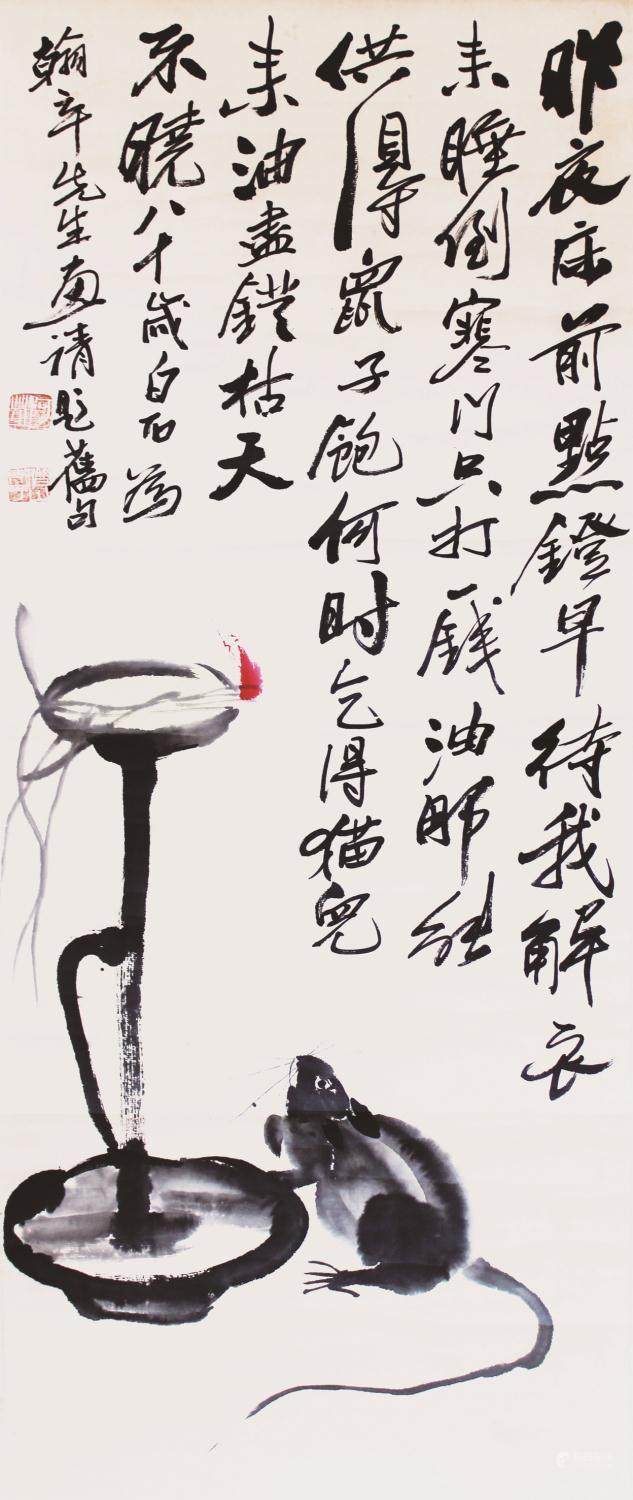 昨夜床前點鐙早待我解衣
未睡倒寒门只打一錢油那能
供得鼠子飽何时乞得猫兒
来油盡鐙枯天
不曉八十歲白石為
翰先生畫請題舊句